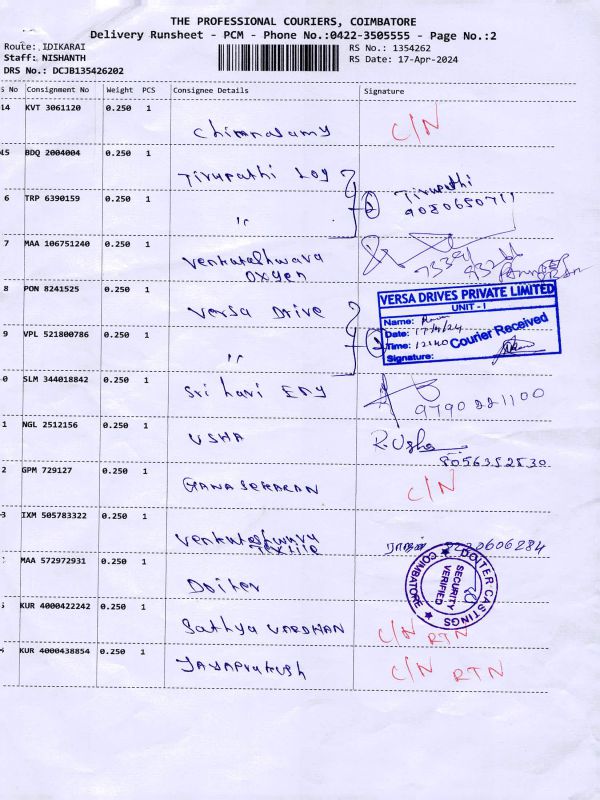 THE PROFESSIONAL COURIERS, COIMBATORE
Delivery Runsheet - PCM - Phone No.:0422-3505555 - Page No.:2
Route: IDIKARAI RS No.: 1354262
Staff: NISHANTH RS Date: 17-Apr-2024
DRS No.: DCJB135426202
S No Consignment No Weight PCS Consignee Details Signature
14 KVT 3061120 0.250 1
Chinnasamy C/N
15 BDQ 2004004 0.250 1
Tirupathi Log
6 TRP 6390159 0.250 1 Tirupathi
" 2 9080650711
7 MAA 106751240 0.250 1
Venkateshwara
Oxygen
8 PON 8241525 0.250 1
Versa Drive
VERSA DRIVES PRIVATE LIMITED
UNIT - I
Name:
Date: 17/4/24
Time: 12:40 Courier Received
Signature:
9 VPL 521800786 0.250 1
" 2
0 SLM 344018842 0.250 1
Sri hari ENY 9790221100
1 NGL 2512156 0.250 1
USHA R.Usha
8056352530
2 GPM 729127 0.250 1
GANASEKARAN C/N
3 IXM 505783322 0.250 1
Venkateshwara
Textile ராஜன்
MAA 572972931 0.250 1
Doiter
DOITER CASTINGS
COIMBATORE
SECURITY
VERIFIED
KUR 4000422242 0.250 1
Sathya VARDHAN C/N RTN
KUR 4000438854 0.250 1
JAYAPrakash C/N RTN